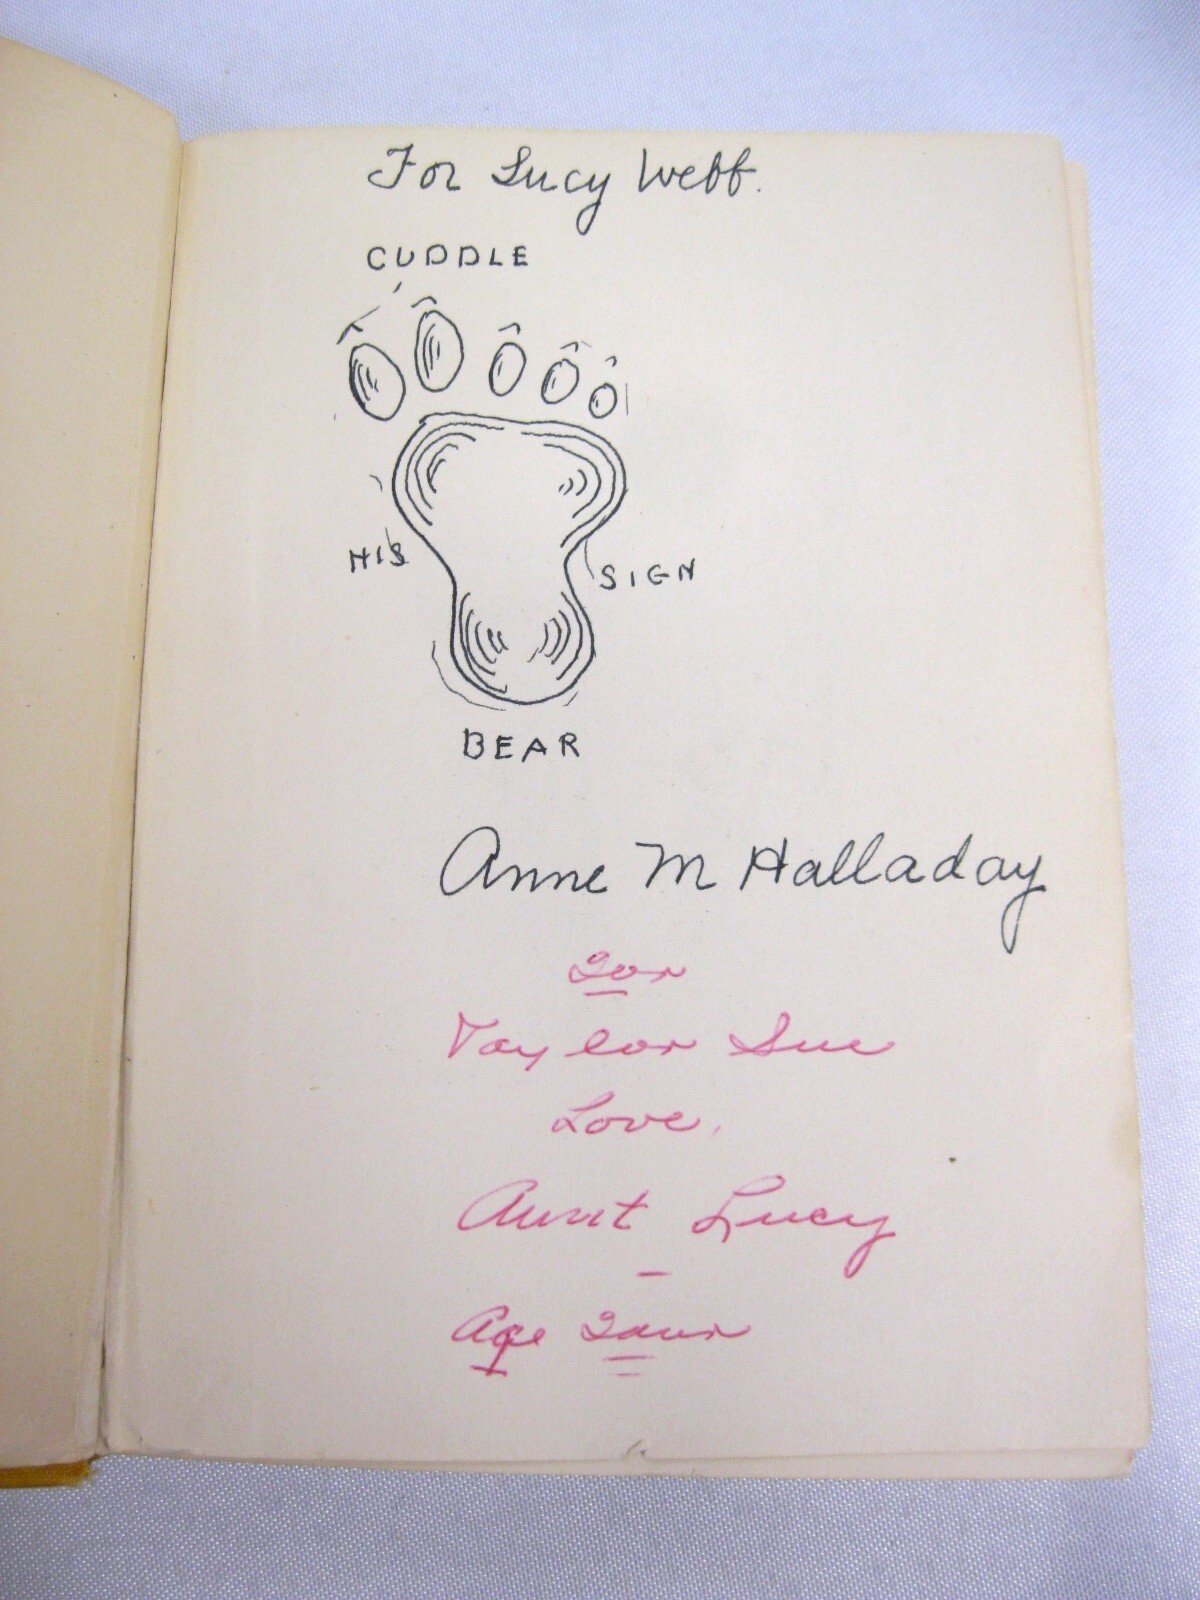 For Lucy Webb.
CUDDLE
HIS SIGN
BEAR
Anne M Halladay
For
Taylor Sue
Love,
Aunt Lucy
Age Four